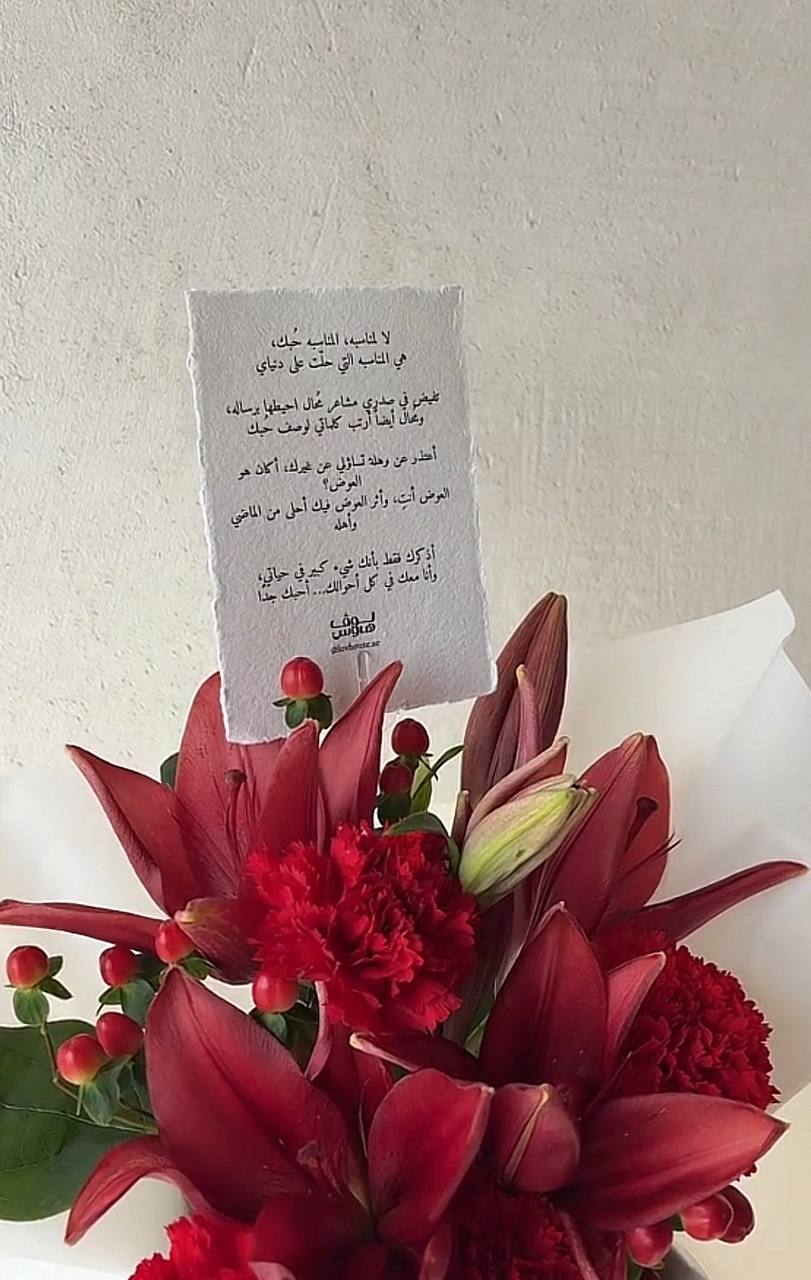 لا لمناسبه، المناسبه حُبك،
هي المناسبه التي حلّت على دنياي
تفيض في صدري مشاعر مُحال احيطها برساله،
ومُحال أيضاً أرتب كلماتي لوصف حُبك
أعتذر عن وهلة تساؤلي عن غيرك، أكان هو
العوض؟
العوض أنتِ، وأثر العوض فيك أحلى من الماضي
وأهله
أذكرك فقط بأنك شيء كبير في حياتي،
وأنا معك في كل أحوالك... أحبك جدًا
لوڤ
هاوس
@lovhouse.ae